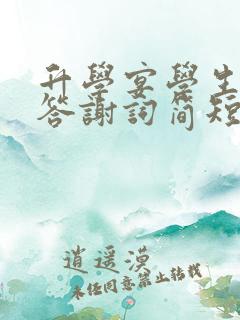 升學宴學生
答謝詞简短
逍遥漠
未经同意禁止转载